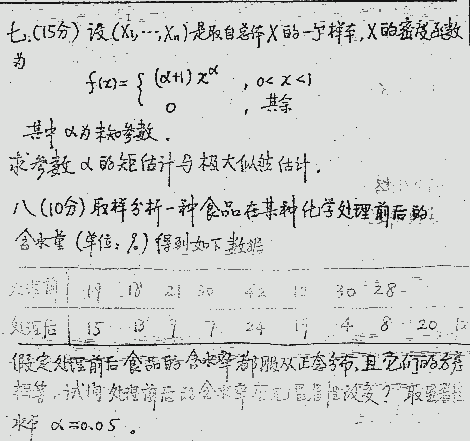 七、(15分) 设 (X₁,…,Xₙ) 是取自总体 X 的一个样本, X 的密度函数
为
f(x) = { (α+1) x^α , 0< x <1
0 , 其余
其中 α 为未知参数.
求参数 α 的矩估计与极大似然估计.
八、(10分) 取样分析一种食品在某种化学处理前后的
含水量 (单位: %) 得到如下数据
处理前 19 18 21 30 42 30 28
处理后 15 13 7 24 19 4 8 20
假定处理前后食品的含水率都服从正态分布, 且它们的方差
相等, 试问处理前后的含水率有无显著性改变? 取显著性
水平 α=0.05 。